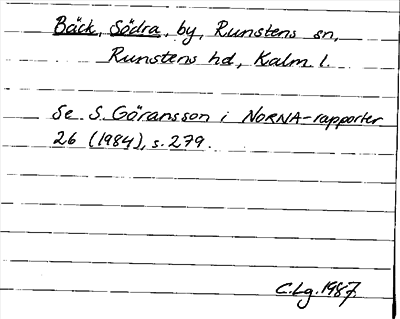 Bäck, Södra, by, Runstens sn,
Runstens hd, Kalm. l.
Se S. Göransson i NORNA-rapporter
26 (1984), s. 279.
C.Lg. 1987.